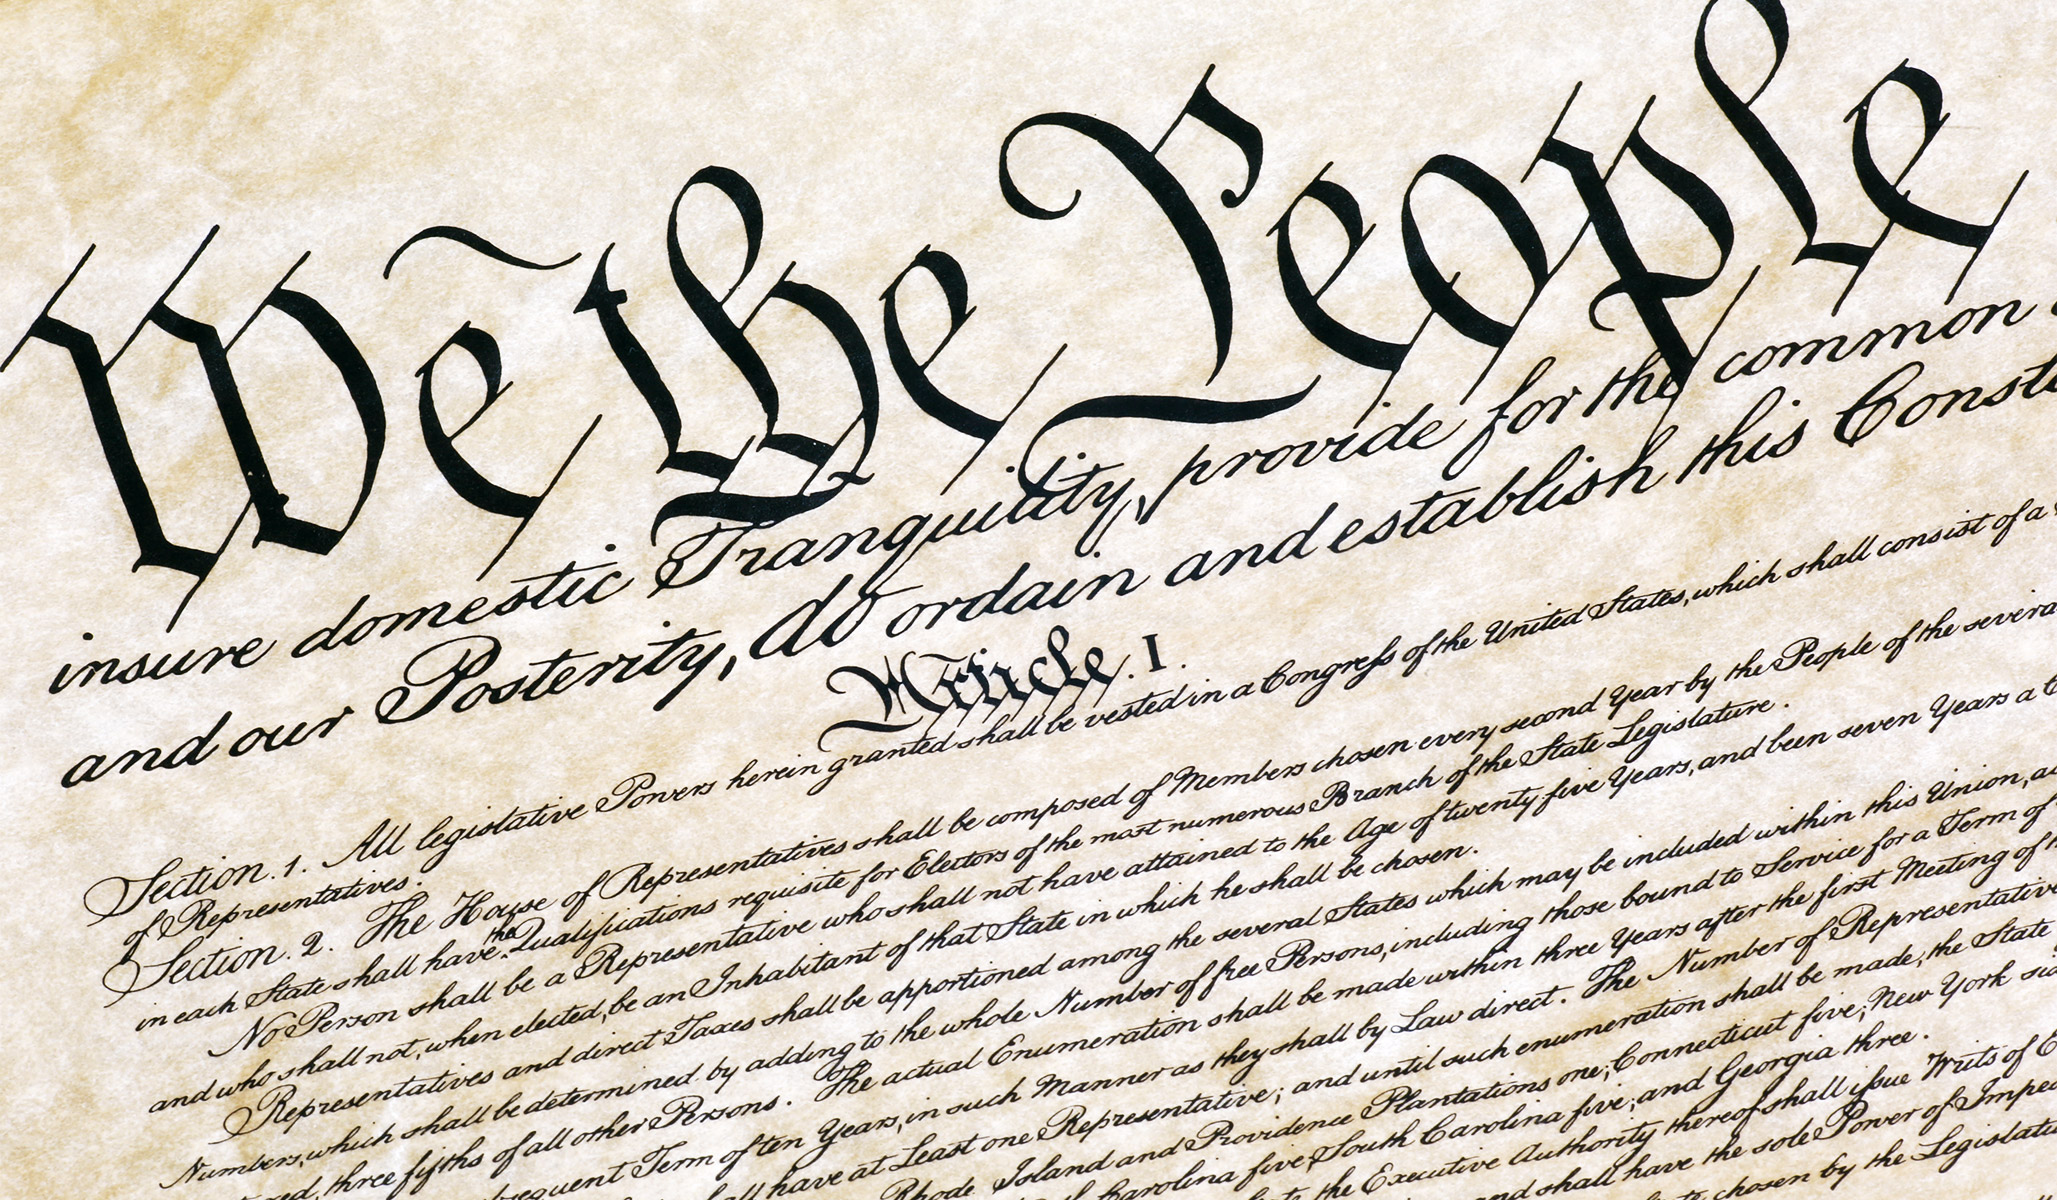 We the People
insure domestic Tranquility, provide for the common
and our Posterity, do ordain and establish this Const
Article. I.
Section. 1. All legislative Powers herein granted shall be vested in a Congress of the United States, which shall consist of a
of Representatives.
Section. 2. The House of Representatives shall be composed of Members chosen every second Year by the People of the severa
in each State shall have the Qualifications requisite for Electors of the most numerous Branch of the State Legislature.
No Person shall be a Representative who shall not have attained to the Age of twenty five Years, and been seven Years a C
and who shall not, when elected, be an Inhabitant of that State in which he shall be chosen.
Representatives and direct Taxes shall be apportioned among the several States which may be included within this Union, ac
Numbers, which shall be determined by adding to the whole Number of free Persons, including those bound to Service for a Term of
three fifths of all other Persons. The actual Enumeration shall be made within three Years after the first Meeting of th
sequent Term of ten Years, in such Manner as they shall by Law direct. The Number of Representative
all have at Least one Representative; and until such enumeration shall be made, the State
Rhode Island and Providence Plantations one, Connecticut five, New York six
Carolina five, South Carolina five, and Georgia three.
the Executive Authority thereof shall issue Writs of E
and shall have the sole Power of Impea
chosen by the Legislatu